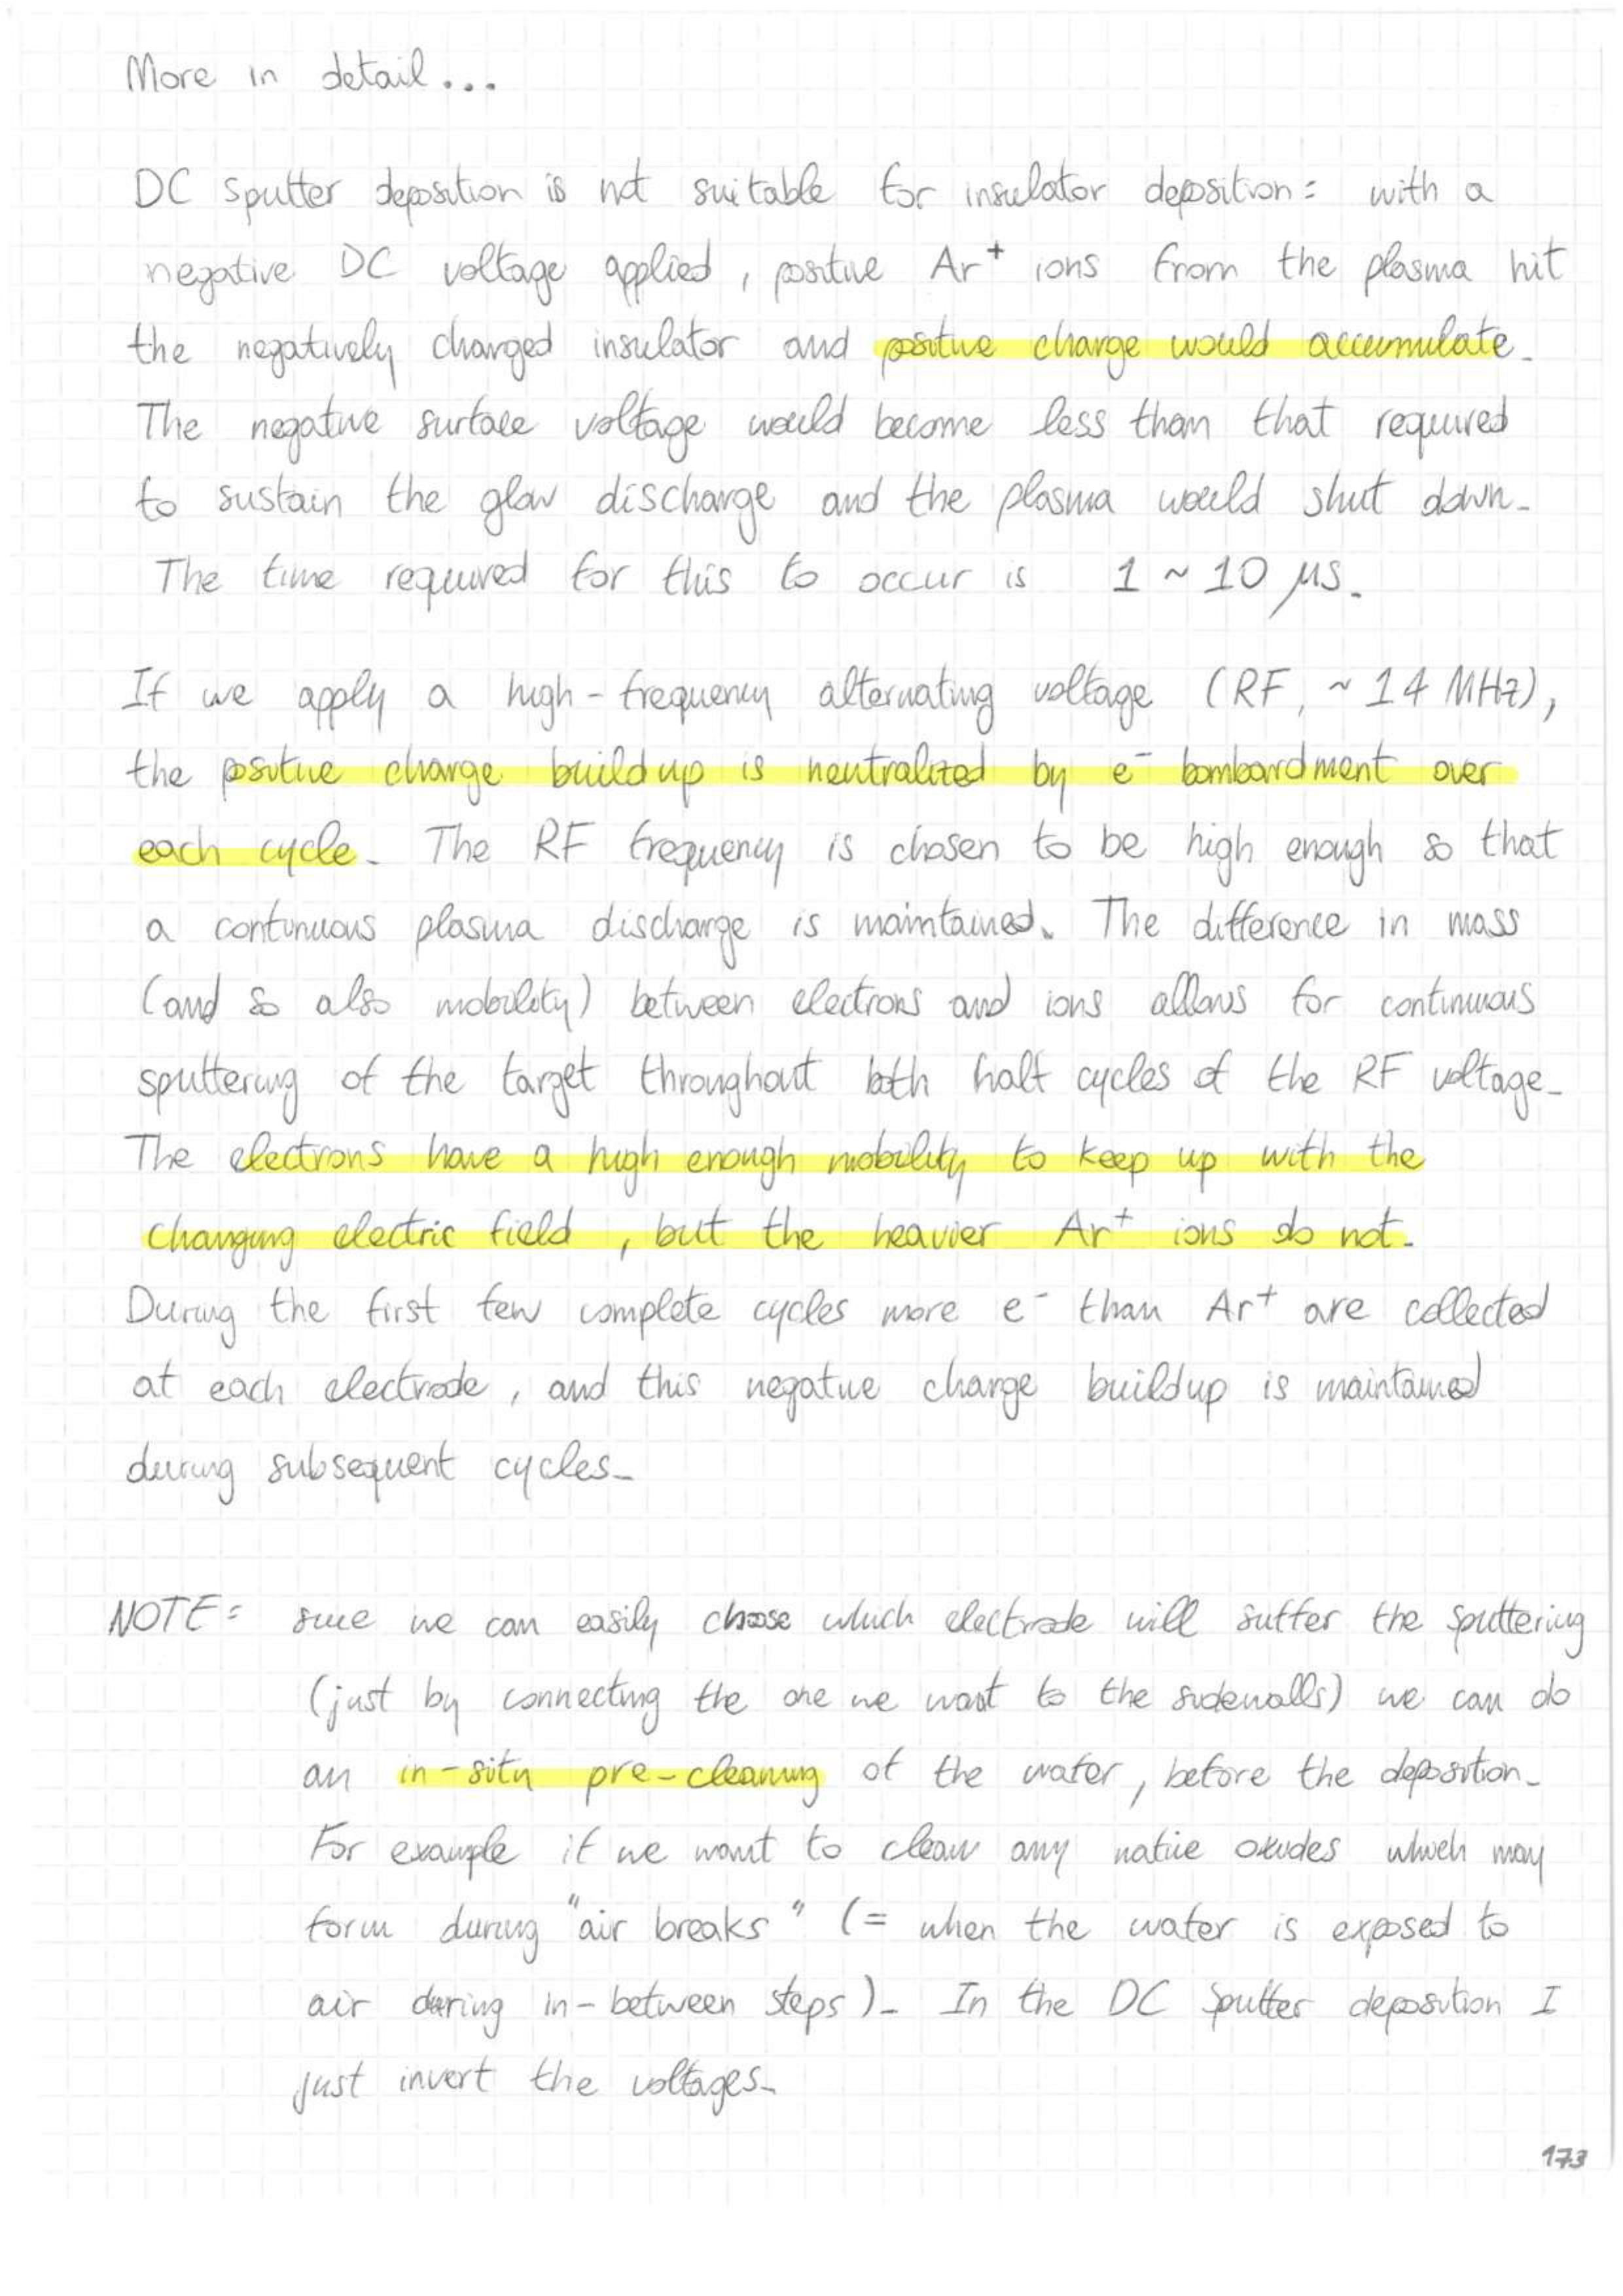 More in detail...
DC sputter deposition is not suitable for insulator deposition: with a
negative DC voltage applied, positive Ar⁺ ions from the plasma hit
the negatively charged insulator and positive charge would accumulate.
The negative surface voltage would become less than that required
to sustain the glow discharge and the plasma would shut down.
The time required for this to occur is 1 ~ 10 μs.
If we apply a high-frequency alternating voltage (RF, ~ 14 MHz),
the positive charge buildup is neutralized by e⁻ bombardment over
each cycle. The RF frequency is chosen to be high enough so that
a continuous plasma discharge is maintained. The difference in mass
(and so also mobility) between electrons and ions allows for continuous
sputtering of the target throughout both half cycles of the RF voltage.
The electrons have a high enough mobility to keep up with the
changing electric field, but the heavier Ar⁺ ions do not.
During the first few complete cycles more e⁻ than Ar⁺ are collected
at each electrode, and this negative charge buildup is maintained
during subsequent cycles.
NOTE: since we can easily choose which electrode will suffer the sputtering
(just by connecting the one we want to the sidewalls) we can do
an in-situ pre-cleaning of the wafer, before the deposition.
For example if we want to clean any native oxides which may
form during "air breaks" (= when the wafer is exposed to
air during in-between steps). In the DC sputter deposition I
just invert the voltages.
173